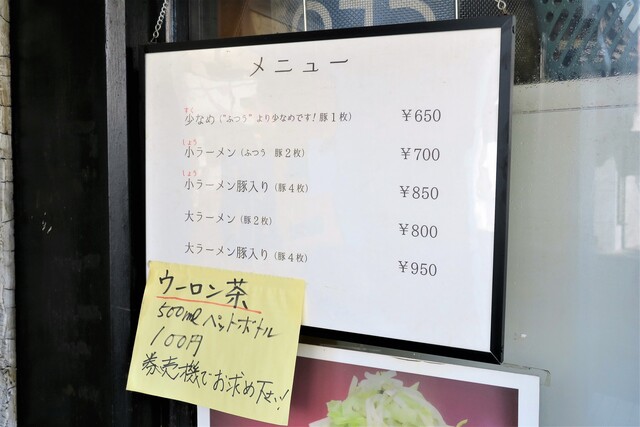 メニュー
少なめ("ふつう"より少なめです!豚1枚) ¥650
小ラーメン(ふつう 豚2枚) ¥700
小ラーメン豚入り(豚4枚) ¥850
大ラーメン(豚2枚) ¥800
大ラーメン豚入り(豚4枚) ¥950
ウーロン茶
500mℓペットボトル
100円
券売機でお求め下さい!